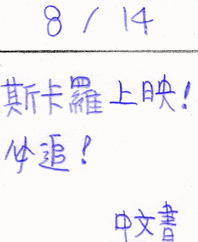 8/14
斯卡羅上映!
必追!
中文書